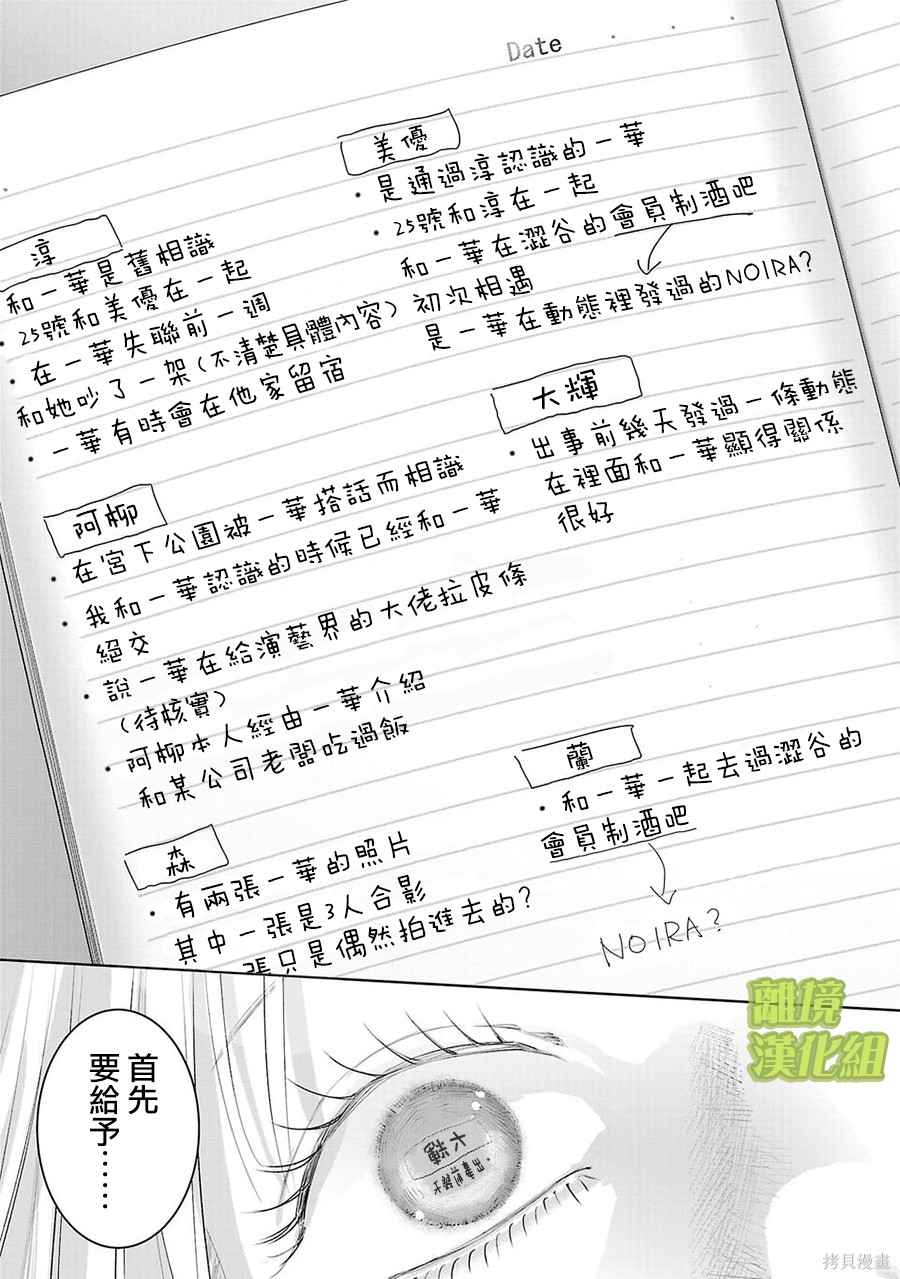 Date
美優
・是通過淳認識的一華
・25號和淳在一起
・和一華在澀谷的會員制酒吧
初次相遇
是一華在動態裡發過的NOIRA?
淳
和一華是舊相識
・25號和美優在一起
・在一華失聯前一週
和她吵了一架(不清楚具體內容)
・一華有時會在他家留宿
大輝
・出事前幾天發過一條動態
在裡面和一華顯得關係
很好
阿柳
・在宮下公園被一華搭話而相識
・我和一華認識的時候已經和一華
絕交
・說一華在給演藝界的大佬拉皮條
(待核實)
・阿柳本人經由一華介紹
和某公司老闆吃過飯
蘭
・和一華一起去過澀谷的
會員制酒吧
NOIRA?
森
・有兩張一華的照片
其中一張是3人合影
一張只是偶然拍進去的?
離境
漢化組
首先
要給予……
大輝
・出事前幾天
拷貝漫畫